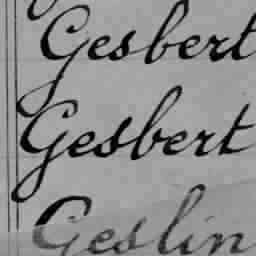 Gesbert
Gesbert
Geslin